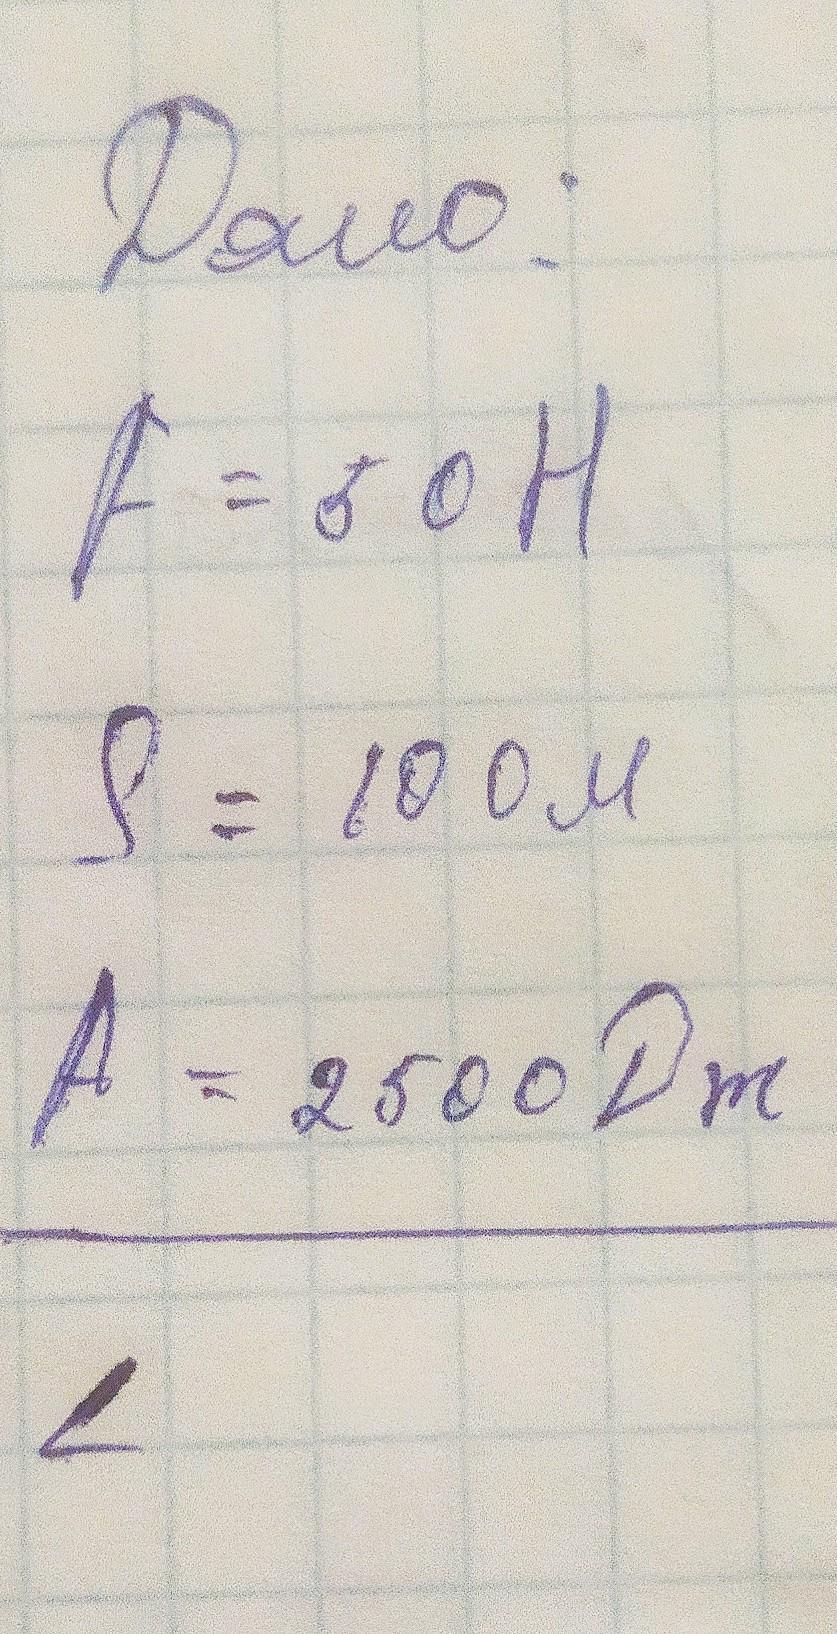 Дано:
F = 50 Н
S = 100 м
A = 2500 Дж
∠